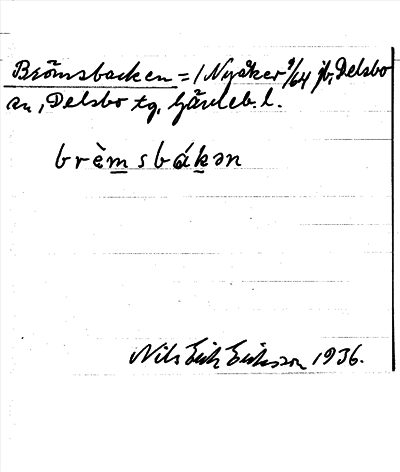 Brömsbacken = 1 Nyåker 9/64 jb, Delsbo
sn, Delsbo tg, Gävleb. l.
brèmsbákən
Nils Erik Eriksson 1936.